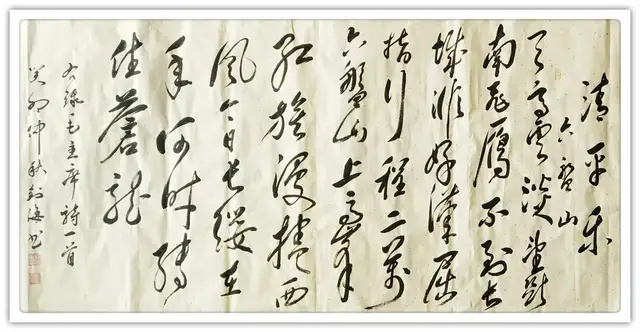 清平乐
六盘山
天高云淡望断
南飞雁不到长
城非好漢屈
指行程二万
六盤山上高峰
红旗漫捲西
风今日长缨在
手何时缚
住蒼龙
右録毛主席詩一首
癸卯仲秋剑海书